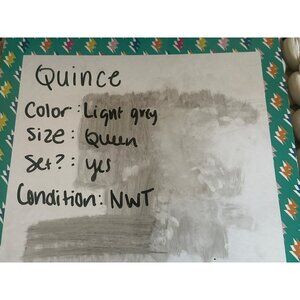 Quince
Color: Light grey
Size: Queen
Set?: yes
Condition: NWT